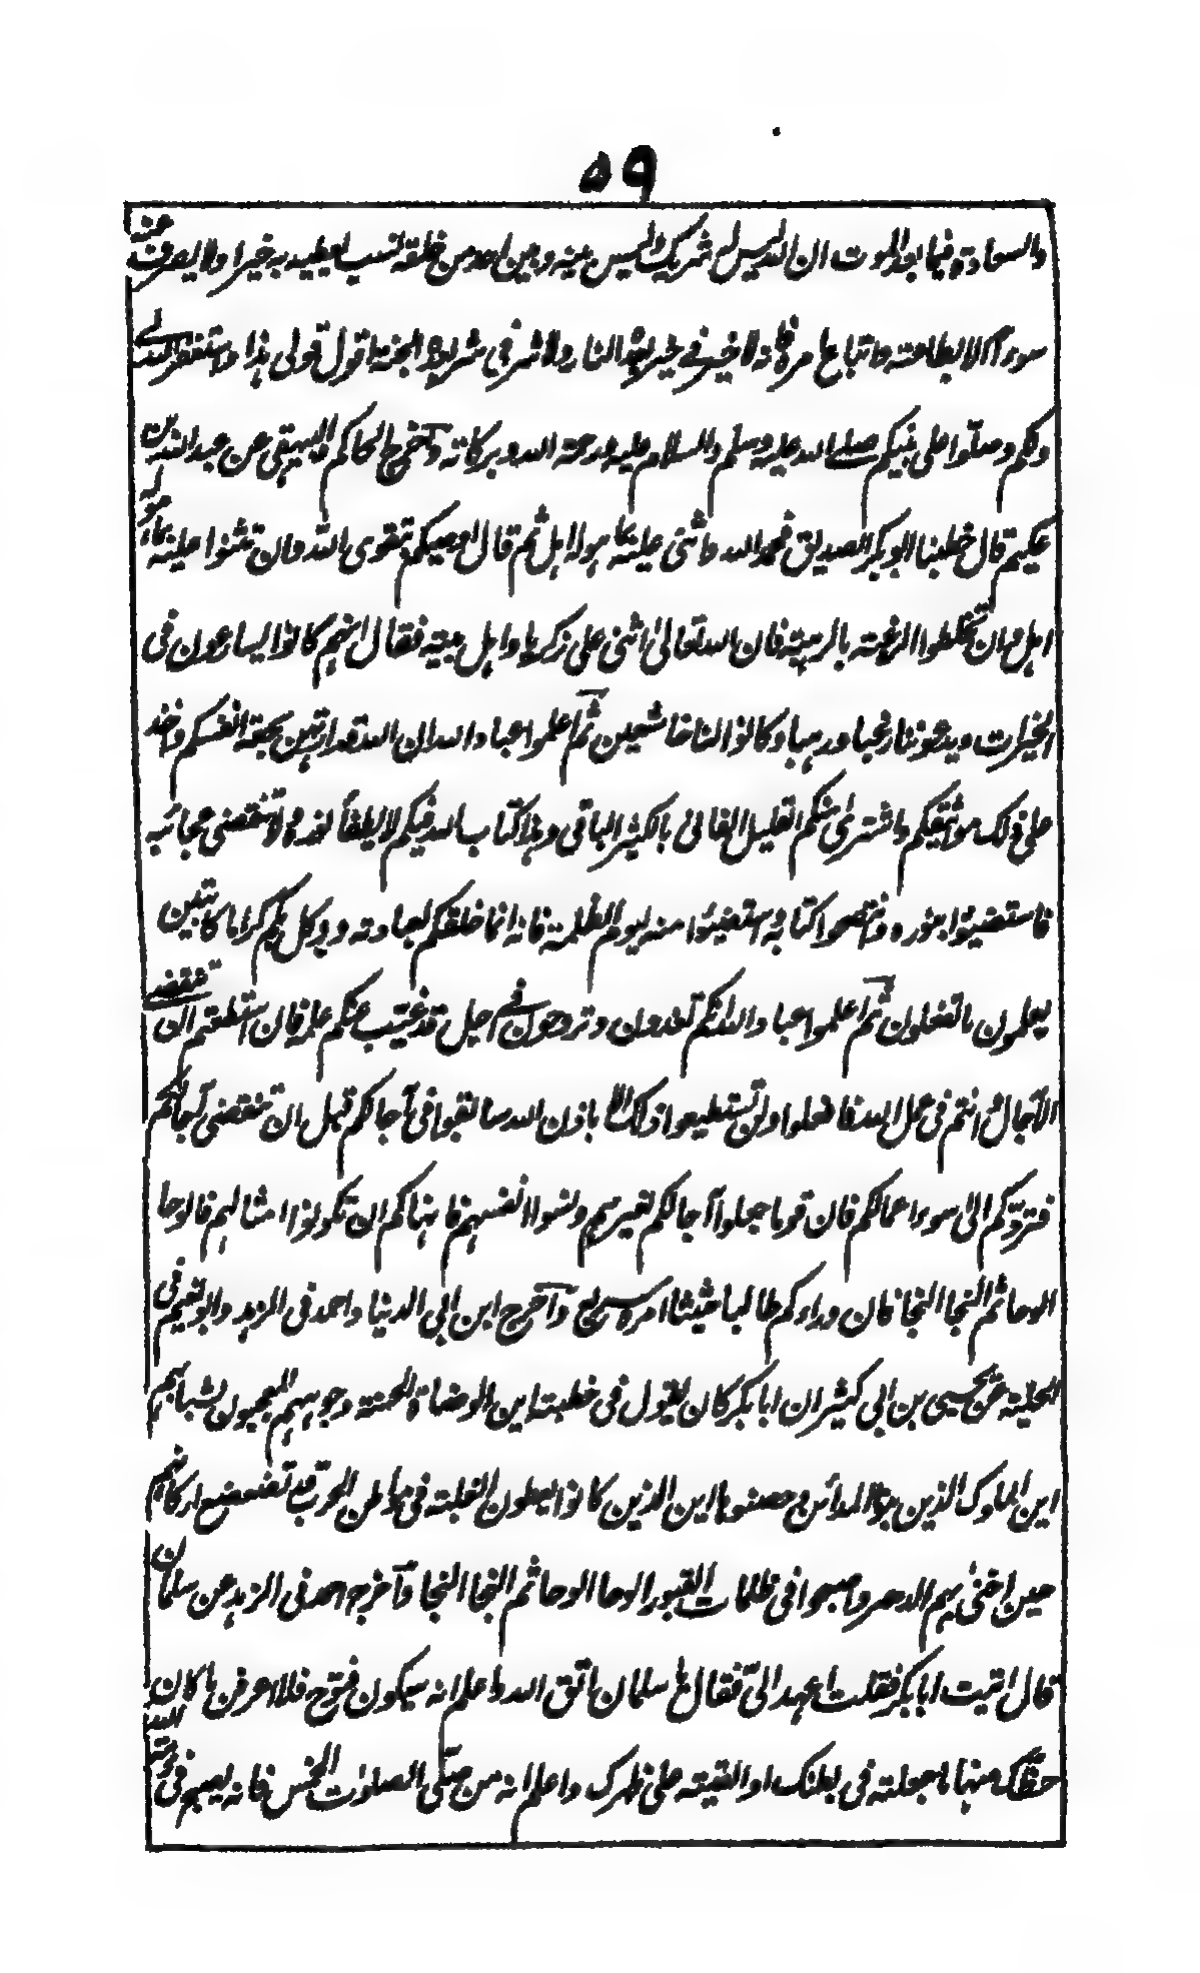 ٥٩
والسعادة فيما بعد الموت ان الله ليس له شريك وليس بينه وبين احد من خلقه نسب يعطيه به خيرا ولا يصرف عنه
سوءا الا بطاعته واتباع امره فانه لا خير في خير بعده النار ولا شر في شر بعده الجنة اقول قولى هذا واستغفر الله لي
ولكم وصلوا على نبيكم صلى الله عليه وسلم والسلام عليه ورحمة الله وبركاته وآخرج الحاكم والبيهقى عن عبد الله بن
عكيم قال خطبنا ابو بكر الصديق فحمد الله واثنى عليه بما هو له اهل ثم قال اوصيكم بتقوى الله وان تثنوا عليه بما هو له
اهل وان تخلطوا الرغبة بالرهبة فان الله تعالى اثنى على زكريا واهل بيته فقال انهم كانوا يسارعون فى
الخيرات ويدعوننا رغبا ورهبا وكانوا لنا خاشعين ثم اعلموا عباد الله ان الله قد ارتهن بحقه انفسكم واخذ
على ذلك مواثيقكم واشترى منكم القليل الفانى بالكثير الباقى وهذا كتاب الله فيكم لا يطفأ نوره ولا تنقضى عجائبه
فاستضيئوا بنوره وانتصحوا كتابه واستضيئوا منه ليوم الظلمة فانه انما خلقكم لعبادته ووكل بكم كراما كاتبين
يعلمون ما تفعلون ثم اعلموا عباد الله انكم تغدون وتروحون في اجل قد غيب عنكم علمه فان استطعتم ان تنقضى
الآجال وانتم فى عمل الله فافعلوا ولن تستطيعوا ذلك الا باذن الله سابقوا فى آجالكم قبل ان تنقضى آجالكم
فتردكم الى سوء اعمالكم فان قوما جعلوا آجالكم لغيرهم ونسوا انفسهم فانهاكم ان تكونوا امثالهم فالوحا
الوحا ثم النجا النجا فان وراءكم طالبا حثيثا امره سريع وآخرج ابن ابى الدنيا واحمد فى الزهد وابو نعيم فى
الحلية عن يحيى بن ابى كثير ان ابا بكر كان يقول فى خطبته اين الوضاة الحسنة وجوههم المعجبون بشبابهم
اين الملوك الذين بنوا المدائن وحصنوها اين الذين كانوا يعطون الغلبة فى مواطن الحرب قد تضعضع اركانهم
حين اخنى بهم الدهر واصبحوا فى ظلمات القبور الوحا الوحا ثم النجا النجا وآخرج احمد فى الزهد عن سلمان
قال اتيت ابا بكر فقلت اعهد الىّ فقال يا سلمان اتق الله واعلم انه سيكون فتوح فلا اعرفن ما كان
حظك منها ما جعلته فى بطنك او القيته على ظهرك واعلم انه من صلّى الصلوات الخمس فانه يصبح فى ذمة الله